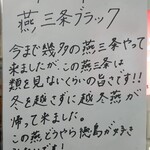 燕三条ブラック
今まで幾多の燕三条やって
来ましたが、この燕三条は
類を見ないくらいの旨さです!!
冬を越さずに越冬燕が
帰って来ました。
この燕どうやら徳島が好き